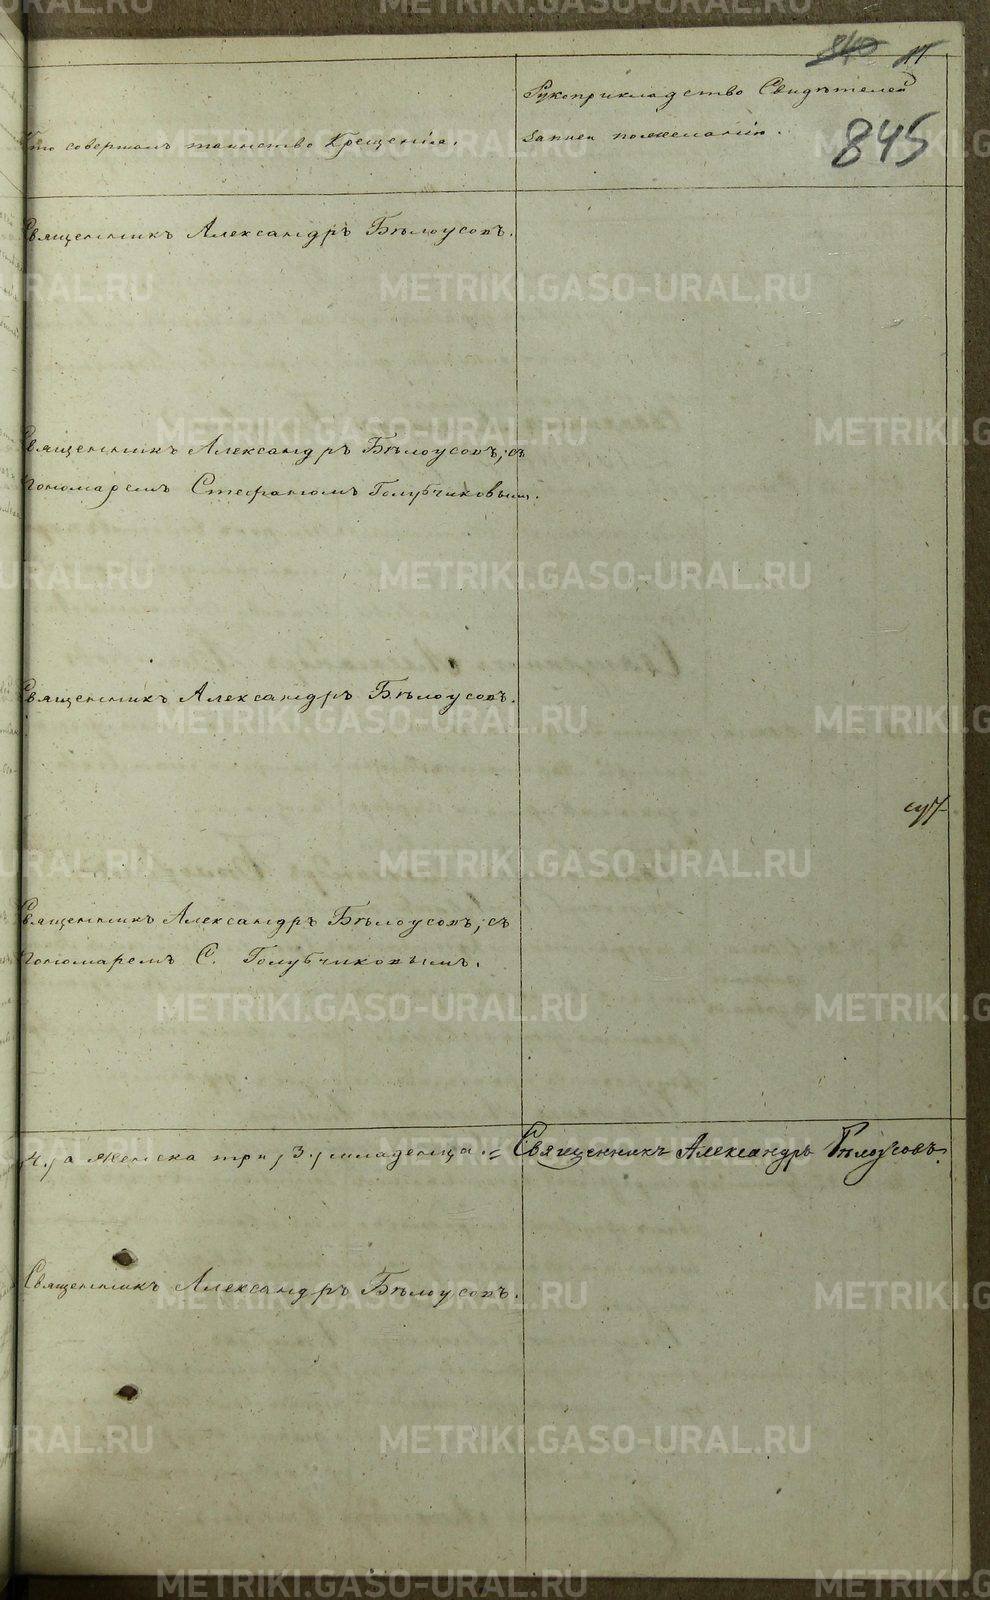 840
Рукоприкладство Свидѣтелей
Кто совершалъ таинство Крещенія.
записи по желанію.
845
Священникъ Александръ Бѣлоусовъ.
Священникъ Александръ Бѣлоусовъ, съ
Пономаремъ Стефаномъ Голубчиковымъ.
Священникъ Александръ Бѣлоусовъ.
Священникъ Александръ Бѣлоусовъ, съ
Пономаремъ С. Голубчиковымъ.
/4./ а женска три /3/ младенца. = Священникъ Александръ Бѣлоусовъ.
Священникъ Александръ Бѣлоусовъ.
METRIKI.GASO-URAL.RU